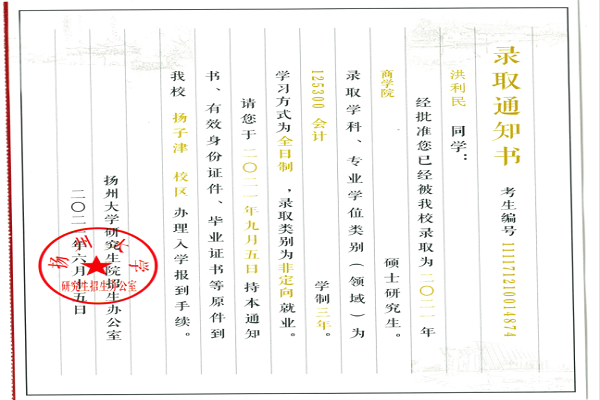 录取通知书
考生编号 111171210014874
洪利民 同学：
经批准您已经被我校录取为二〇二一年
商学院 硕士研究生。
录取学科、专业学位类别（领域）为
125300 会计 学制三年。
学习方式为全日制，录取类别为非定向就业。
请您于二〇二一年九月五日持本通知
书、有效身份证件、毕业证书等原件到
我校 扬子津 校区 办理入学报到手续。
扬州大学研究生院招生办公室
二〇二一年六月十五日
扬州大学
研究生招生办公室